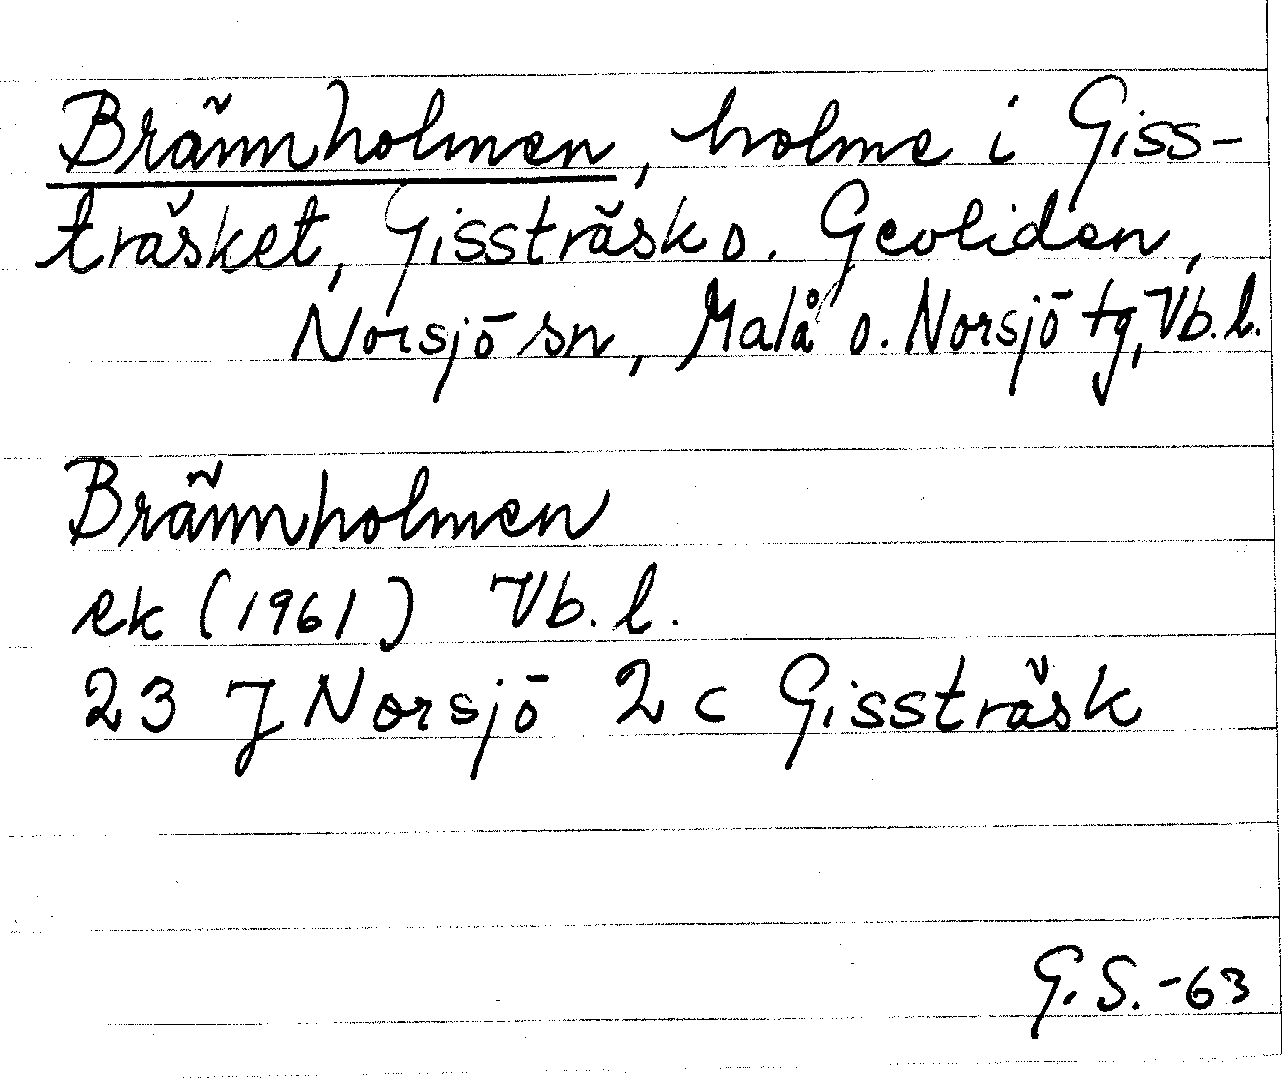 Brännholmen, holme i Giss-
träsket, Gissträsk o. Gevliden,
Norsjö sn, Malå o. Norsjö tg, Vb. l.
Brännholmen
ek (1961) Vb. l.
23 J Norsjö 2 c Gissträsk
G. S. -63